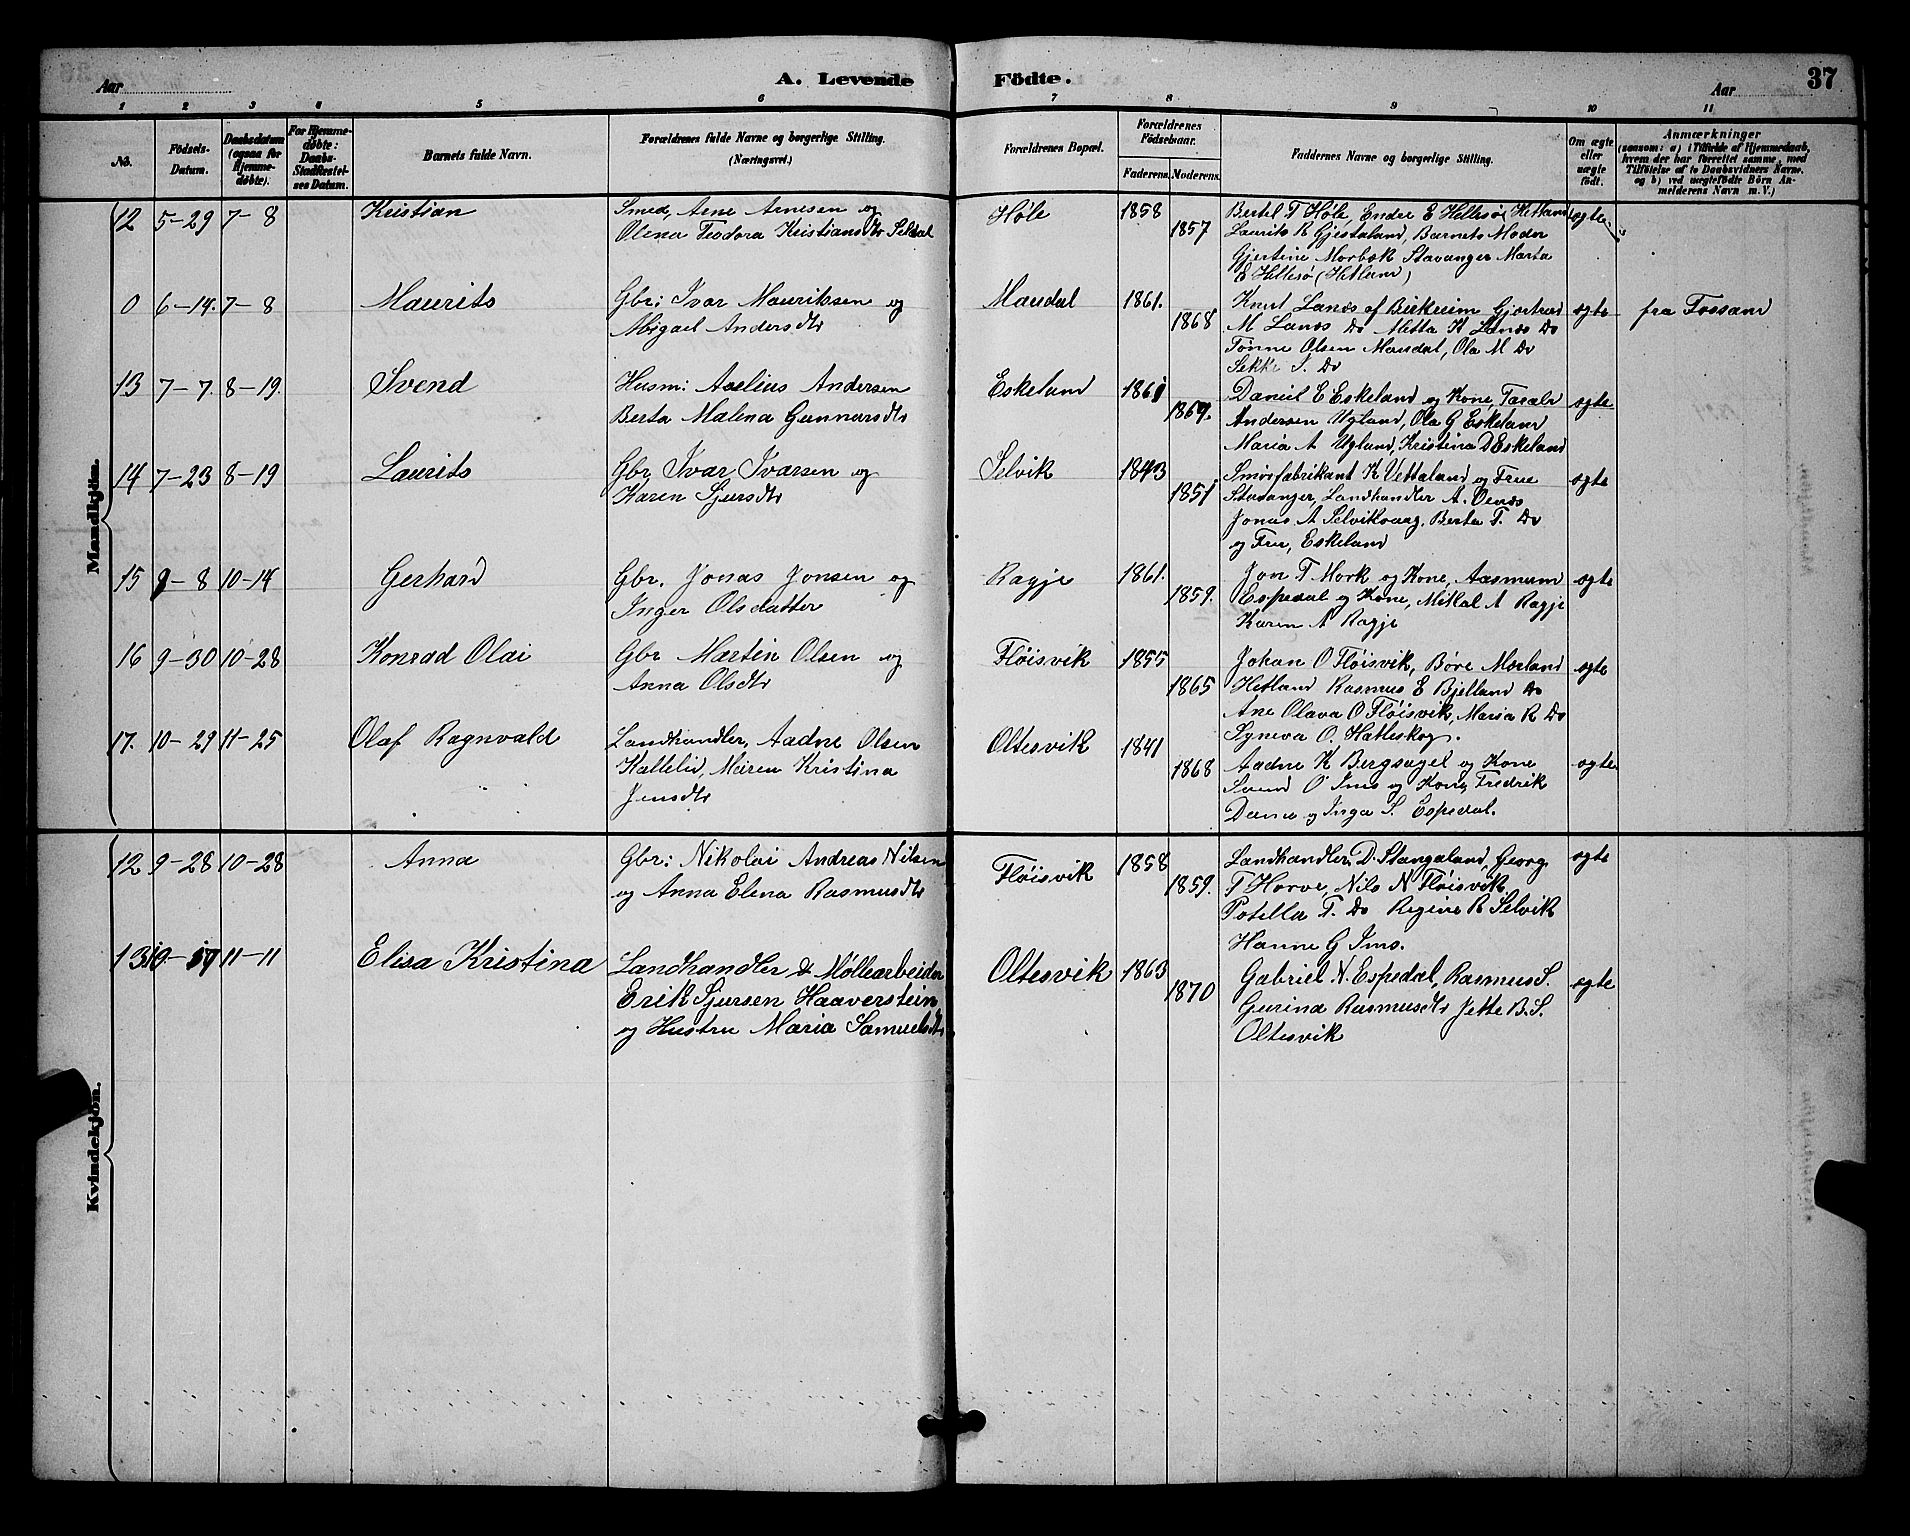 A. Levende Födte.
37
Aar
Aar
1 2 3 4 5 6 7 8 9 10 11
No.
Födsels-
Datum.
Daabsdatum
(ogsaa for
Hjemme-
døbte).
For Hjemme-
døbte:
Daabs-
Stadfæstel-
ses Datum.
Barnets fulde Navn.
Forældrenes fulde Navne og borgerlige Stilling.
(Næringsvei.)
Forældrenes Bopæl.
Forældrenes
Födselsaar.
Faderens. Moderens.
Faddernes Navne og borgerlige Stilling.
Om ægte
eller
uægte
födt.
Anmærkninger
(saasom: a) i Tilfælde af Hjemmedaab,
hvem der har forrettet samme, med
Tilföielse af to Daabsvidners Navne,
og b) ved uægtefødte Börn An-
melderens Navn m. V.)
Mandkjön.
12 5-29 7-8 Kristian
Smed, Arne Arnesen og
Olena Teodora Kristiansdtr Seldal
Høle 1858 1857
Bertel T Høle, Endre E Hellesø (Hetland
Laurits R Gjestaland, Barnets Moder
Gjertine Morbæk Stavanger Marta
E Hellesø (Hetland)
ægte
0 6-14. 7-8 Maurits
Gbr: Ivar Mauritsen og
Abigael Andersdtr
Maudal 1861. 1868
Knut Lanæs af Birkreim Gjertrud
M Lanæs Do Metta K Lanæs Do
Tønne Olsen Maudal, Ola M Do
Sekke T. Do
ægte fra Fossand
13 7-7. 8-19. Svend
Husm: Aselius Andersen
Berta Malena Gunnarsdtr
Eskeland 1861 1867.
Daniel E Eskeland og Kone, Taralv
Andersen Ugland, Ola G Eskeland
Maria A Ugland, Kristina D Eskeland
ægte
14 7-23 8-19 Laurits
Gbr Ivar Ivarsen og
Karen Sjursdtr
Selvik 1843 1851
Smörfabrikant K Vettaland og Frue
Stavanger, Landhandler A. Olnæs
Jonas A Selvikvaag, Berta T. Do
og Frue, Eskeland
ægte
15 8-8 10-14 Gerhard
Gbr. Jonas Jonsen og
Inger Olsdatter
Ragje 1861. 1859.
Jon T Mork og Kone, Aasmund
Espedal og Kone, Mikal A Ragje
Karen A Ragje
ægte
16 9-30 10-28 Konrad Olai
Gbr Martin Olsen og
Anna Olsdtr
Fløisvik 1855 1865
Johan O Fløisvik, Børe Morland
Hetland Rasmus E Bjelland Do
Ane Olava O Fløisvik, Maria R Do
Syneva O. Hatleskog.
ægte
17. 10-29 11-25 Olaf Ragnvald
Landhandler, Aadne Olsen
Kallelid, Meiren Kristina
Jensdtr
Oltesvik 1841 1868
Aadne K Bergsagel og Kone
Svend O Ims og Kone, Fredrik
Dana og Inga S. Espedal.
ægte
Kvindekjön.
12 9-28 10-28 Anna
Gbr: Nikolai Andreas Nilsen
og Anna Elena Rasmusdtr
Fløisvik 1858 1859.
Landhandler, D. Stangaland, Georg
T Horve, Nils N Fløisvik
Potella T. Do Regine R Selvik
Hanne G Ims.
ægte
13 10-17 11-11 Elisa Kristina
Landhandler & Møllearbeider
Erik Sjursen Haaverstein
og Hustru Maria Samuelsdtr
Oltesvik 1863 1870
Gabriel N. Espedal, Rasmus S.
Gurina Rasmusdtr Jette B. S.
Oltesvik
ægte